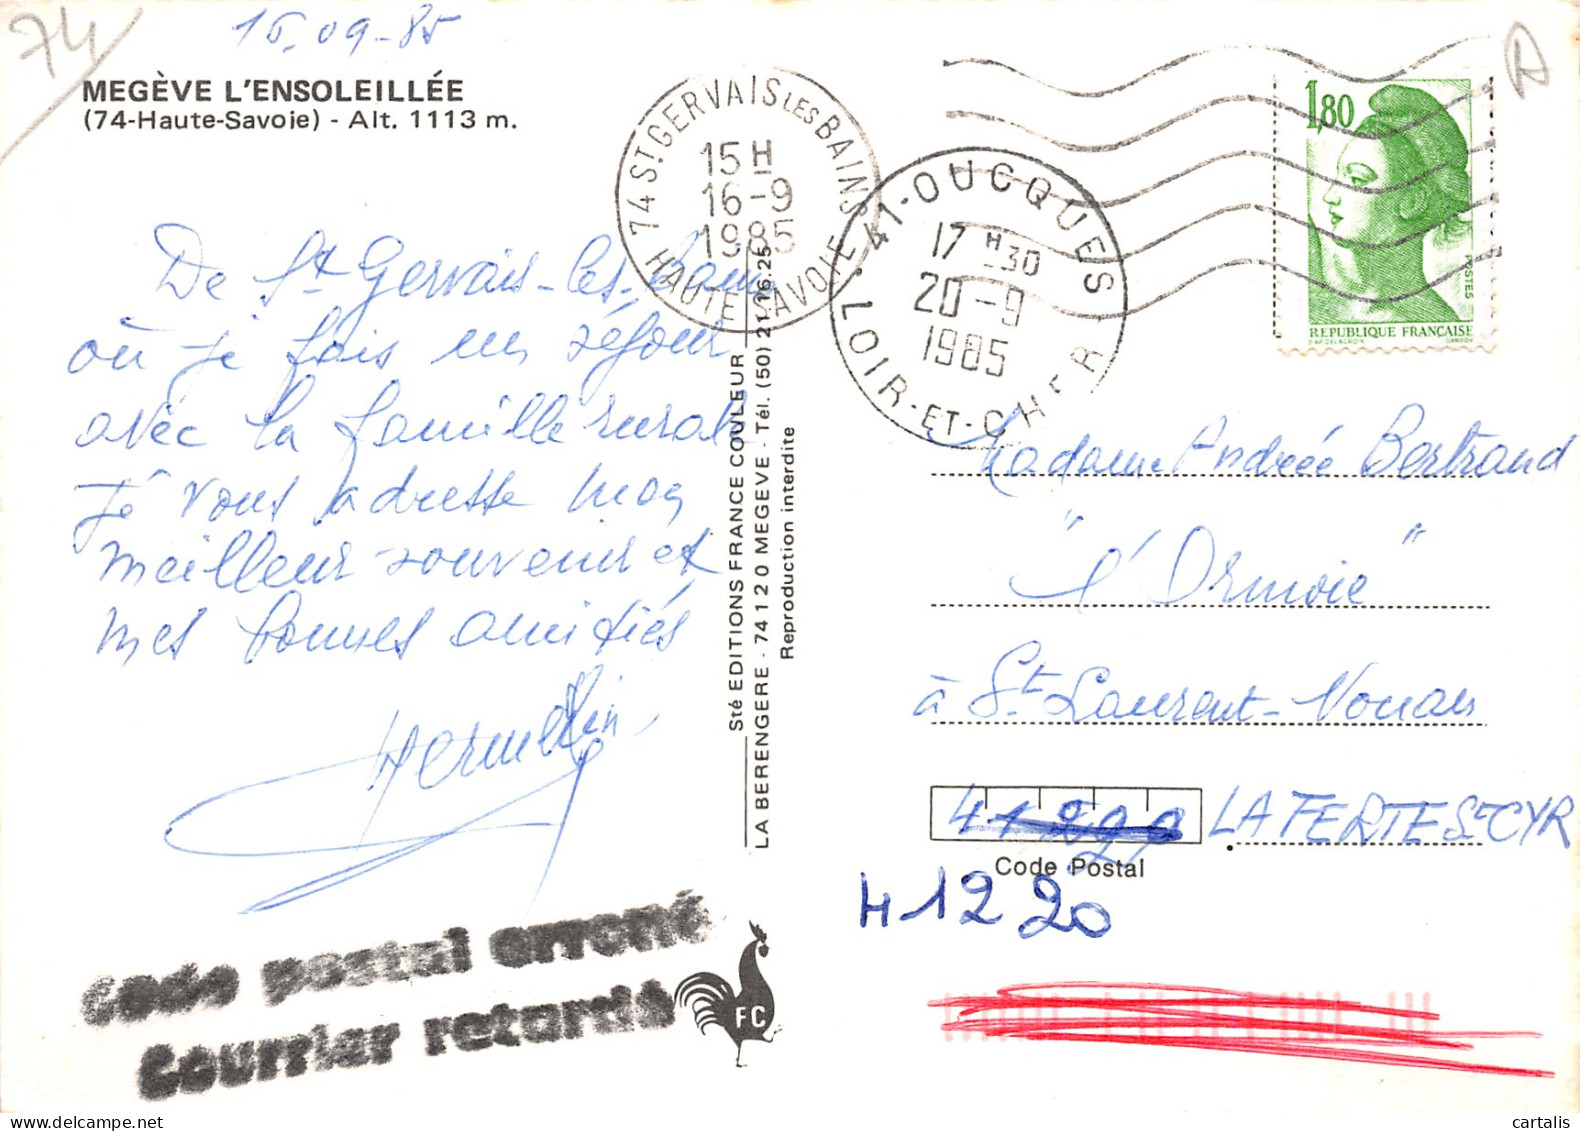 74
15.09-85
MEGÈVE L'ENSOLEILLÉE
(74-Haute-Savoie) - Alt. 1113 m.
De St Gervais-les-Bains
où je fais un séjour
avec la famille rurale
Je vous adresse mon
meilleur souvenir et
mes bonnes amitiés
74 ST GERVAIS LES BAINS
15 H
16-9
1985
HAUTE SAVOIE
41-OUCQUES
17 H 30
20-9
1985
LOIR-ET-CHER
1,80
POSTES
REPUBLIQUE FRANÇAISE
D'AP. DELACROIX
GANDON
Sté EDITIONS FRANCE COULEUR
LA BERENGERE - 74120 MEGEVE - Tél. (50) 21.16.25
Reproduction interdite
Madame Andréé Bertrand
"l'Ormoie"
à St Laurent-Nouan
LA FERTE St CYR
Code Postal
41220
Code postal erroné
Courrier retardé
FC
cartalis